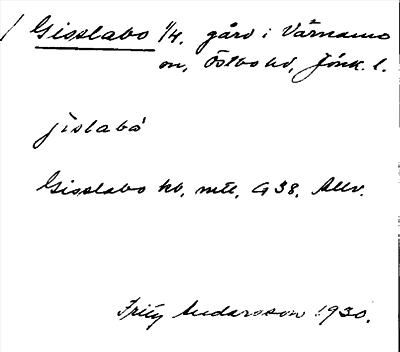 Gisslabo 1/4. gård i Värnamo
sn, Östbo hd, Jönk. l.
jislabo
Gisslabo hd, mtl, G 38. Allv.
Fritz Andersson 1930.